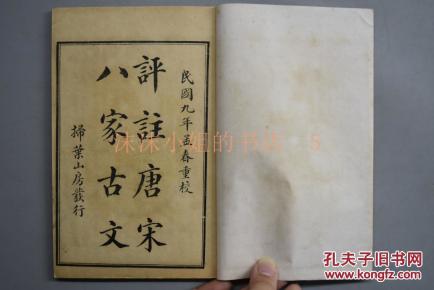 民國九年孟春重校
評註唐宋
八家古文
掃葉山房發行
沐沐小姐的书店 5
孔夫子旧书网
www.kongfz.com